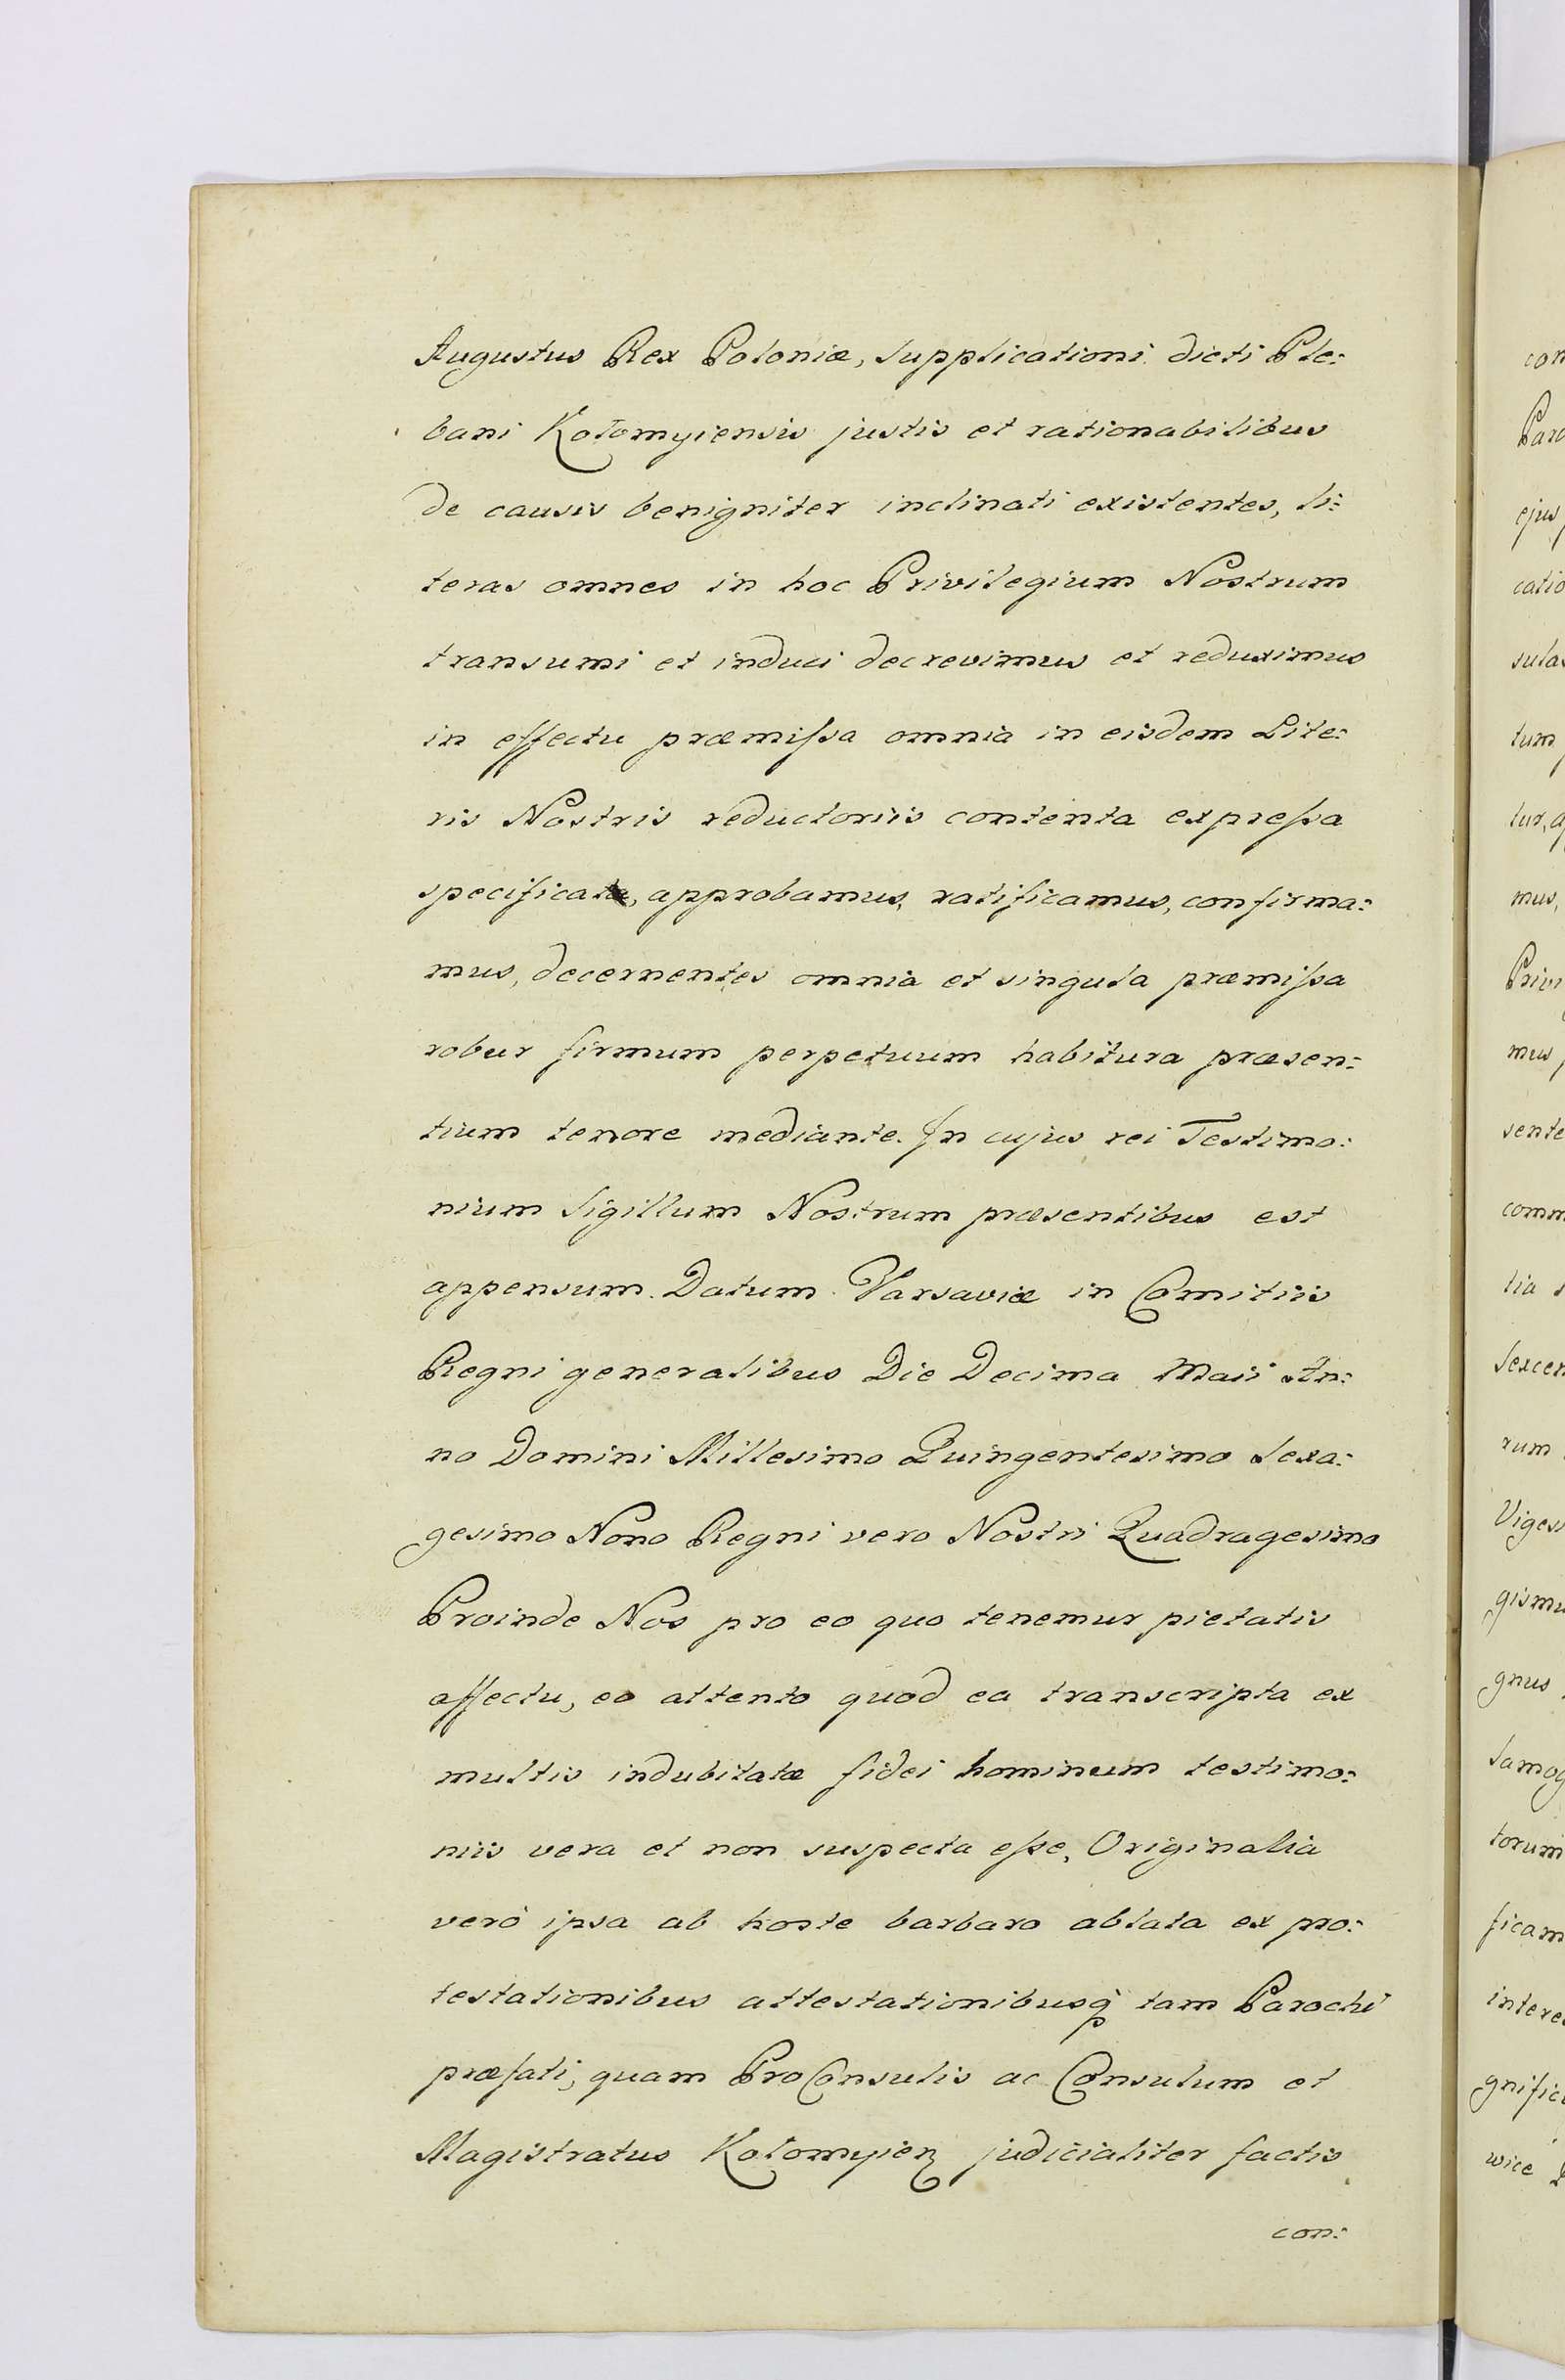 Augustus Rex Poloniæ, Supplicationi dicti Ple:
bani Kołomyiensis justis et rationabilibus
de causis benigniter inclinati existentes, li:
teras omnes in hoc Privilegium Nostrum
transumi et induci decrevimus et reduximus
in effectu præmissa omnia in eisdem Lite:
ris Nostris reductoriis contenta expressa
specificata, approbamus, ratificamus, confirma:
mus, decernentes omnia et singula præmissa
robur firmum perpetuum habitura præsen:
tium tenore mediante. In cujus rei Testimo:
nium Sigillum Nostrum præsentibus est
appensum. Datum Varsaviæ in Comitiis
Regni generalibus Die Decima Maii An:
no Domini Millesimo Quingentesimo Sexa:
gesimo Nono Regni vero Nostri Quadragesimo
Proinde Nos pro eo quo tenemur pietatis
affectu, eo attento quod ea transcripta ex
multis indubitatæ fidei hominum testimo:
niis vera et non suspecta esse, Originalia
verò ipsa ab hoste barbaro ablata ex pro:
testationibus attestationibusq̀ tam Parochi
præfati, quam ProConsulis ac Consulum et
Magistratus Kołomyien judicialiter factis
con:
con
Paro
ejus
catio
sulas
tum
tur, a
mus,
Privi
mus
sente
comm
lia s
Sexcen
rum
Viges
gismu
gnus
Samog
torum
ficam
intere
gnific
wice